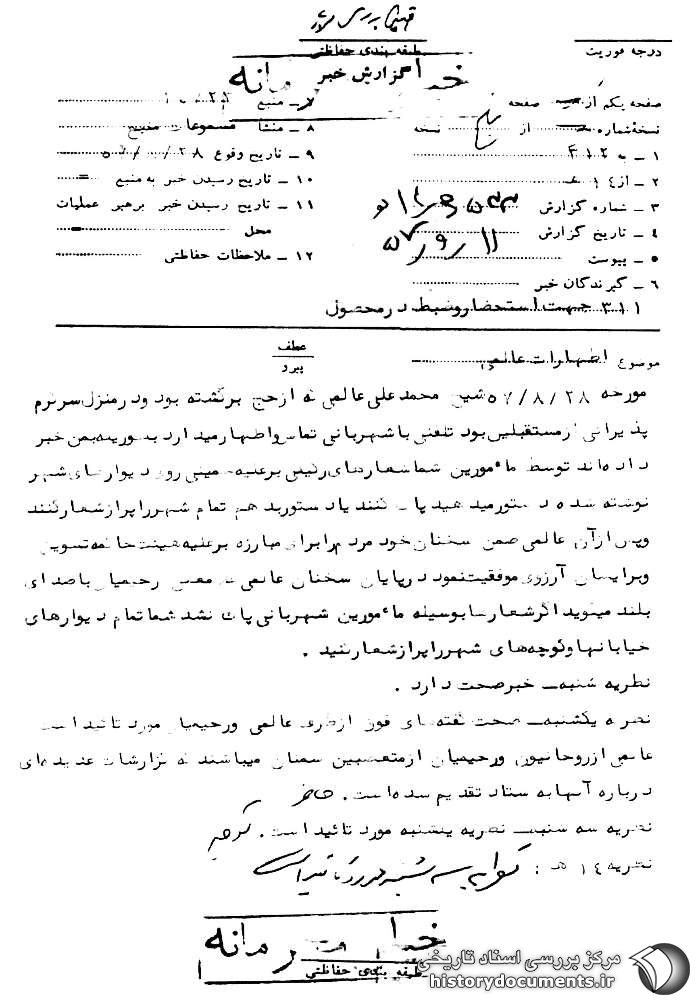 طبقه بندی حفاظتی
درجه فوریت
گزارش خبر
صفحه یکم از صفحه
نسخه شماره از نسخه
۱ - به ۳۱۲
۲ - از ۱۴ هـ
۳ - شماره گزارش
۴ - تاریخ گزارش ۱۱ر۹ر۵۷
۵ - پیوست
۶ - گیرندگان خبر
۳۱۱ جهت استحضار و ضبط در محصول
۷ - منبع
۸ - منشا مسموعات منبع
۹ - تاریخ وقوع
۱۰ - تاریخ رسیدن خبر به منبع
۱۱ - تاریخ رسیدن خبر برهبر عملیات
محل
۱۲ - ملاحظات حفاظتی
موضوع اظهارات عالمی
عطف
پیرو
مورخه ۵۷/۸/۲۸ شیخ محمدعلی عالمی که از حج برگشته بود و در منزل سرگرم
پذیرائی از مستقبلین بود تلفنی با شهربانی تماس و اظهار میدارد بطوریکه بمن خبر
داده‌اند توسط مأمورین شما شعارهای رئیس برعلیه خمینی روی دیوارهای شهر
نوشته شده دستور میدهید پاک کنند یا دستور بدهم تمام شهر را پر از شعار کنند
وپس از آن عالمی ضمن سخنان خود مردم را برای مبارزه برعلیه هیئت حاکمه تشویق
وبرایشان آرزوی موفقیت نمود در پایان سخنان عالمی رحیمیان با صدای
بلند میگوید اگر شعارها بوسیله مأمورین شهربانی پاک نشد شما تمام دیوارهای
خیابانها و کوچه‌های شهر را پر از شعار کنید .
نظریه شنبه - خبر صحت دارد .
نظریه یکشنبه - صحت گفته‌های فوق از طرف عالمی و رحیمیان مورد تائید است
عالمی از روحانیون و رحیمیان از متعصبین سمنان میباشند که گزارشات عدیده‌ای
درباره آنها به ستاد تقدیم شده است .
نظریه سه شنبه - نظریه یکشنبه مورد تائید است .
نظریه ۱۴ هـ :
طبقه بندی حفاظتی
مرکز بررسی اسناد تاریخی
historydocuments.ir